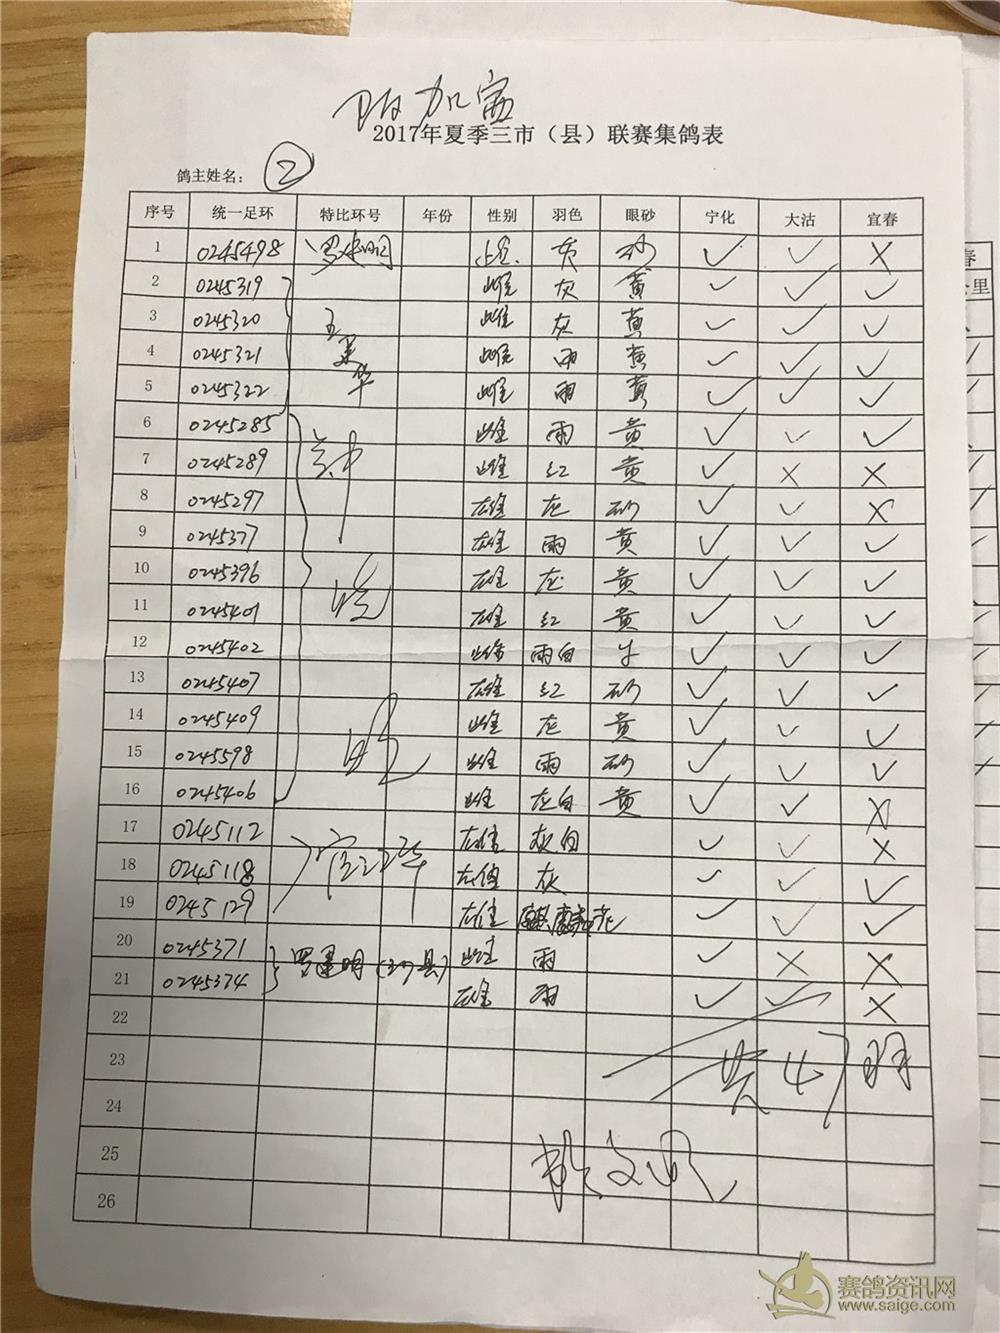 加富
2017年夏季三市（县）联赛集鸽表
鸽主姓名： ②
序号 统一足环 特比环号 年份 性别 羽色 眼砂 宁化 大沽 宜春
1 0245498 雌 灰 砂 ✓ ✓ ✗
2 0245319 雌 灰 黄 ✓ ✓ ✓
3 0245320 王 雌 灰 黄 ✓ ✓ ✓
4 0245321 美 雌 雨 黄 ✓ ✓ ✓
5 0245322 华 雌 雨 黄 ✓ ✓ ✓
6 0245285 雌 雨 黄 ✓ ✓ ✓
7 0245289 雌 红 黄 ✓ ✗ ✗
8 0245297 雄 灰 砂 ✓ ✓ ✗
9 0245377 雄 雨 黄 ✓ ✓ ✓
10 0245396 雄 灰 黄 ✓ ✓ ✓
11 0245401 雄 红 黄 ✓ ✓ ✓
12 0245402 雌 雨白 牛 ✓ ✓ ✓
13 0245407 雄 红 砂 ✓ ✓ ✓
14 0245409 雌 灰 黄 ✓ ✓ ✓
15 0245598 雌 雨 砂 ✓ ✓ ✓
16 0245406 雌 灰白 黄 ✓ ✓ ✗
17 0245112 雄 灰白 ✓ ✓ ✗
18 0245118 雄 灰 ✓ ✓ ✓
19 0245129 雄 麒麟花 ✓ ✓ ✓
20 0245371 罗建明 雌 雨 ✓ ✗ ✗
21 0245374 雄 雨 ✓ ✓ ✗
22
23
24
25
26
赛鸽资讯网
www.saige.com